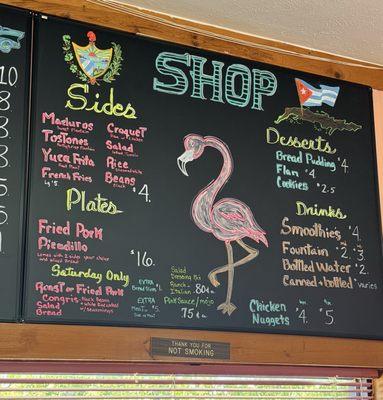 10
8
8
8
8
9
1
SHOP
Sides
Maduros
Sweet Plantain
Tostones
Yuca Frita
French Fries
$
Croquet
Salad
Rice
Beans
$4.
Plates
Fried Pork
Picadillo
Comes with 2 sides your choice
and bread
$
Saturday Only
Roast or Fried Pork
Congris
Salad
Bread
$
EXTRA
Bread Slice $1.
EXTRA
Meat $5.
Salad
Dressing
Ranch
Italian
80¢
Pork Sauce / mojo
75¢
Desserts
Bread Pudding $4.
Flan $4.
Cookies $2.5
Drinks
Smoothies $4.
Fountain $2. $3.
Bottled Water $2.
Canned + bottled varies
Chicken
Nuggets
$4. $5.
THANK YOU FOR
NOT SMOKING